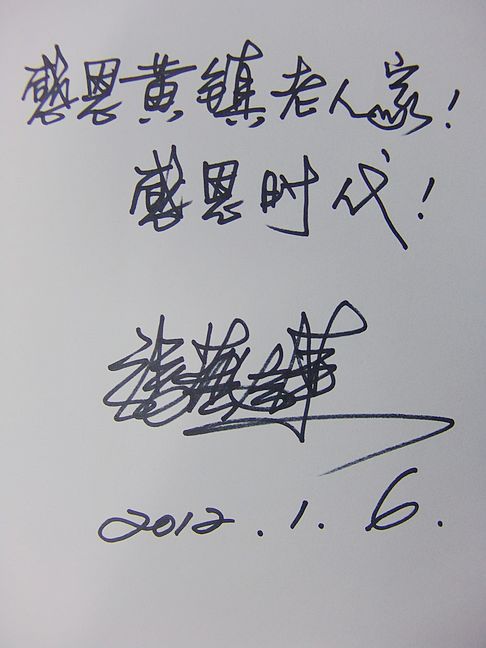 感恩黄镇老人家！
感恩时代！
2012.1.6.